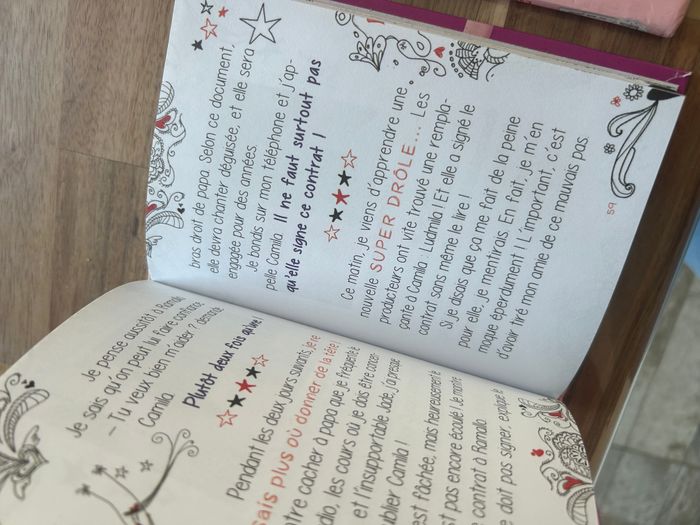 Je pense aussitôt à
Je sais qu'on peut lui faire confiance.
– Tu veux bien m'aider ? demande
Camila.
Plutôt deux fois qu'une !
Pendant les deux jours suivants, je ne
sais plus où donner de la tête !
ntre cacher à papa que je fréquente le
dio, les cours où je dois être concen-
et l'insupportable Jade, j'ai presque
ublier Camila !
est fâchée, mais heureusement le
st pas encore écoulé ! Je montre
e contrat à Ramallo.
e doit pas signer, explique
bras droit de papa. Selon ce document,
elle devra chanter déguisée, et elle sera
engagée pour des années.
Je bondis sur mon téléphone et j'ap-
pelle Camila. Il ne faut surtout pas
qu'elle signe ce contrat !
Ce matin, je viens d'apprendre une
nouvelle SUPER DRÔLE... Les
producteurs ont vite trouvé une rempla-
çante à Camila : Ludmila ! Et elle a signé le
contrat sans même le lire !
Si je disais que ça me fait de la peine
pour elle, je mentirais. En fait, je m'en
moque éperdument ! L'important, c'est
d'avoir tiré mon amie de ce mauvais pas.
59